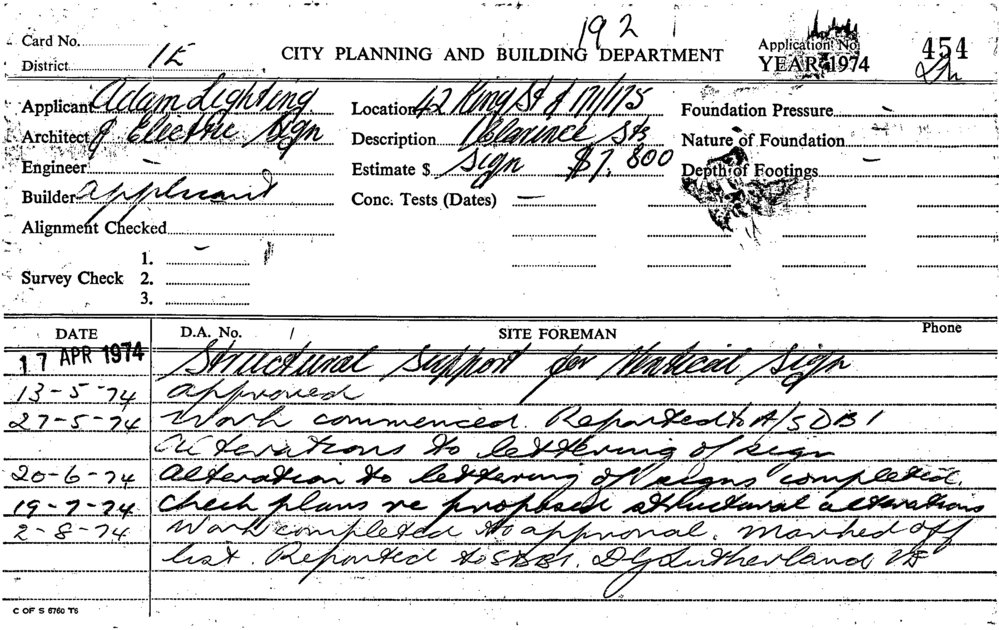 192
Card No.
District 1E
CITY PLANNING AND BUILDING DEPARTMENT
Application No.
YEAR 1974
454
Applicant Adam Lighting
Location 42 King St & 171/175
Foundation Pressure
Architect & Electric Sign
Description Clarence Sts
Nature of Foundation
Engineer -
Estimate $ Sign $7.800
Depth of Footings -
Builder Applicant
Conc. Tests (Dates) -
Alignment Checked
Survey Check
1.
2.
3.
DATE
D.A. No. /
SITE FOREMAN
Phone
17 APR 1974 Structural Support for Vertical Sign
13-5-74 Approved
27-5-74 Work commenced. Reported to A/SDB1
Alterations to lettering of sign
20-6-74 Alteration to lettering of signs completed.
19-7-74 Check plans re proposed structural alterations
2-8-74 Work completed to approval. Marked off
list. Reported to SBB1. DG Sutherland
C OF S 6760 T6